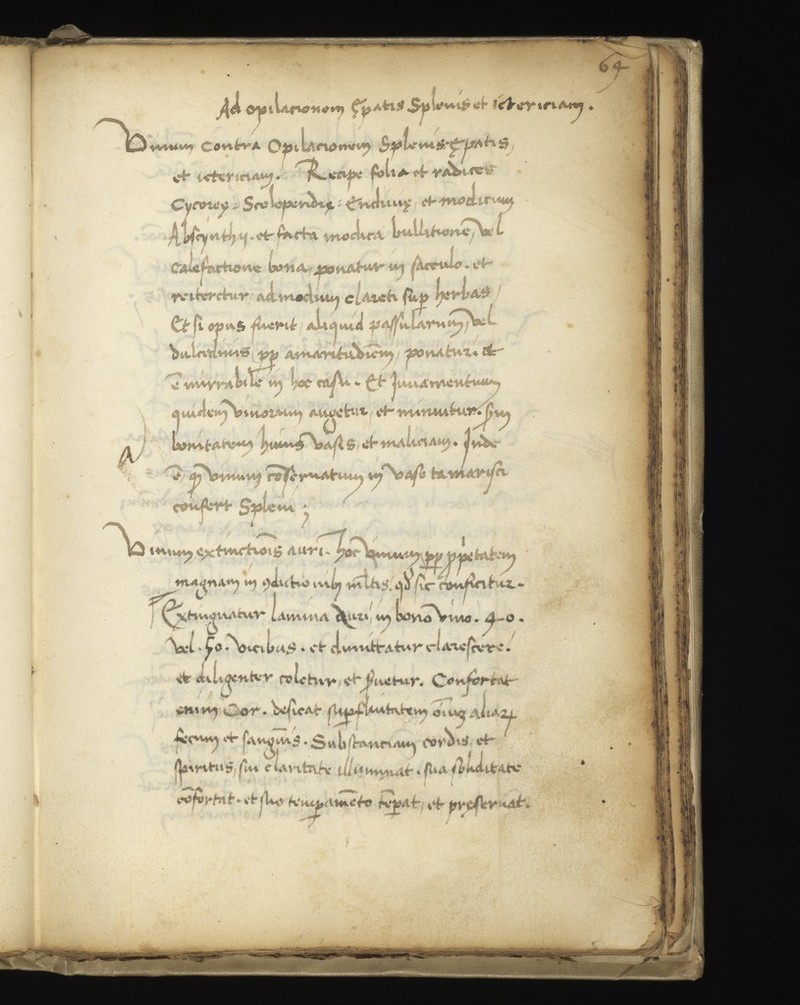 64
Ad opilacionem ępatis Splenis et ictericiam.
Vinum contra Opilacionem Splenis Ępatis,
et ictericiam. Recipe folia et radices
Cycoreę. Scolopendrię. Endiuię, et modicum
Abscynthij. et facta modica bullitionē, vel
calefactione bona, ponatur in sacculo. et
reiteretur, admodum clareti sup herbas,
Et si opus fuerit, aliquid passularum, vel
dulcedinis, pp amaritudiēm, ponatur. et
ē mirrabile in hoc casu. Et Juuamentum
quidem vinorum augetur, et minuitur. scdm
bonitatem huius vasis, et maliciam. Inde
ē, qd vinum cōseruatum in vase tamarisci
confert Spleni;
Vinum extinctiōis auri. hoc vinum, pp ppetatem
magnam in 9dictionib mltis, qd sic conficitur.
Extinguatur lamina Auri, in bono vino. 40.
vel. 50. vicibus. et dimittatur clarescere.
et diligenter coletur, et seruetur. Confortat
enim Cor. desicat supfluitatem oīuz aliarꝝ
fecum et sanguīs. Substanciam cordis, et
spiritus, sui claritate illuminat. sua soliditate
cōfortat. et suo tempamēto tēpat, et pręseruat.